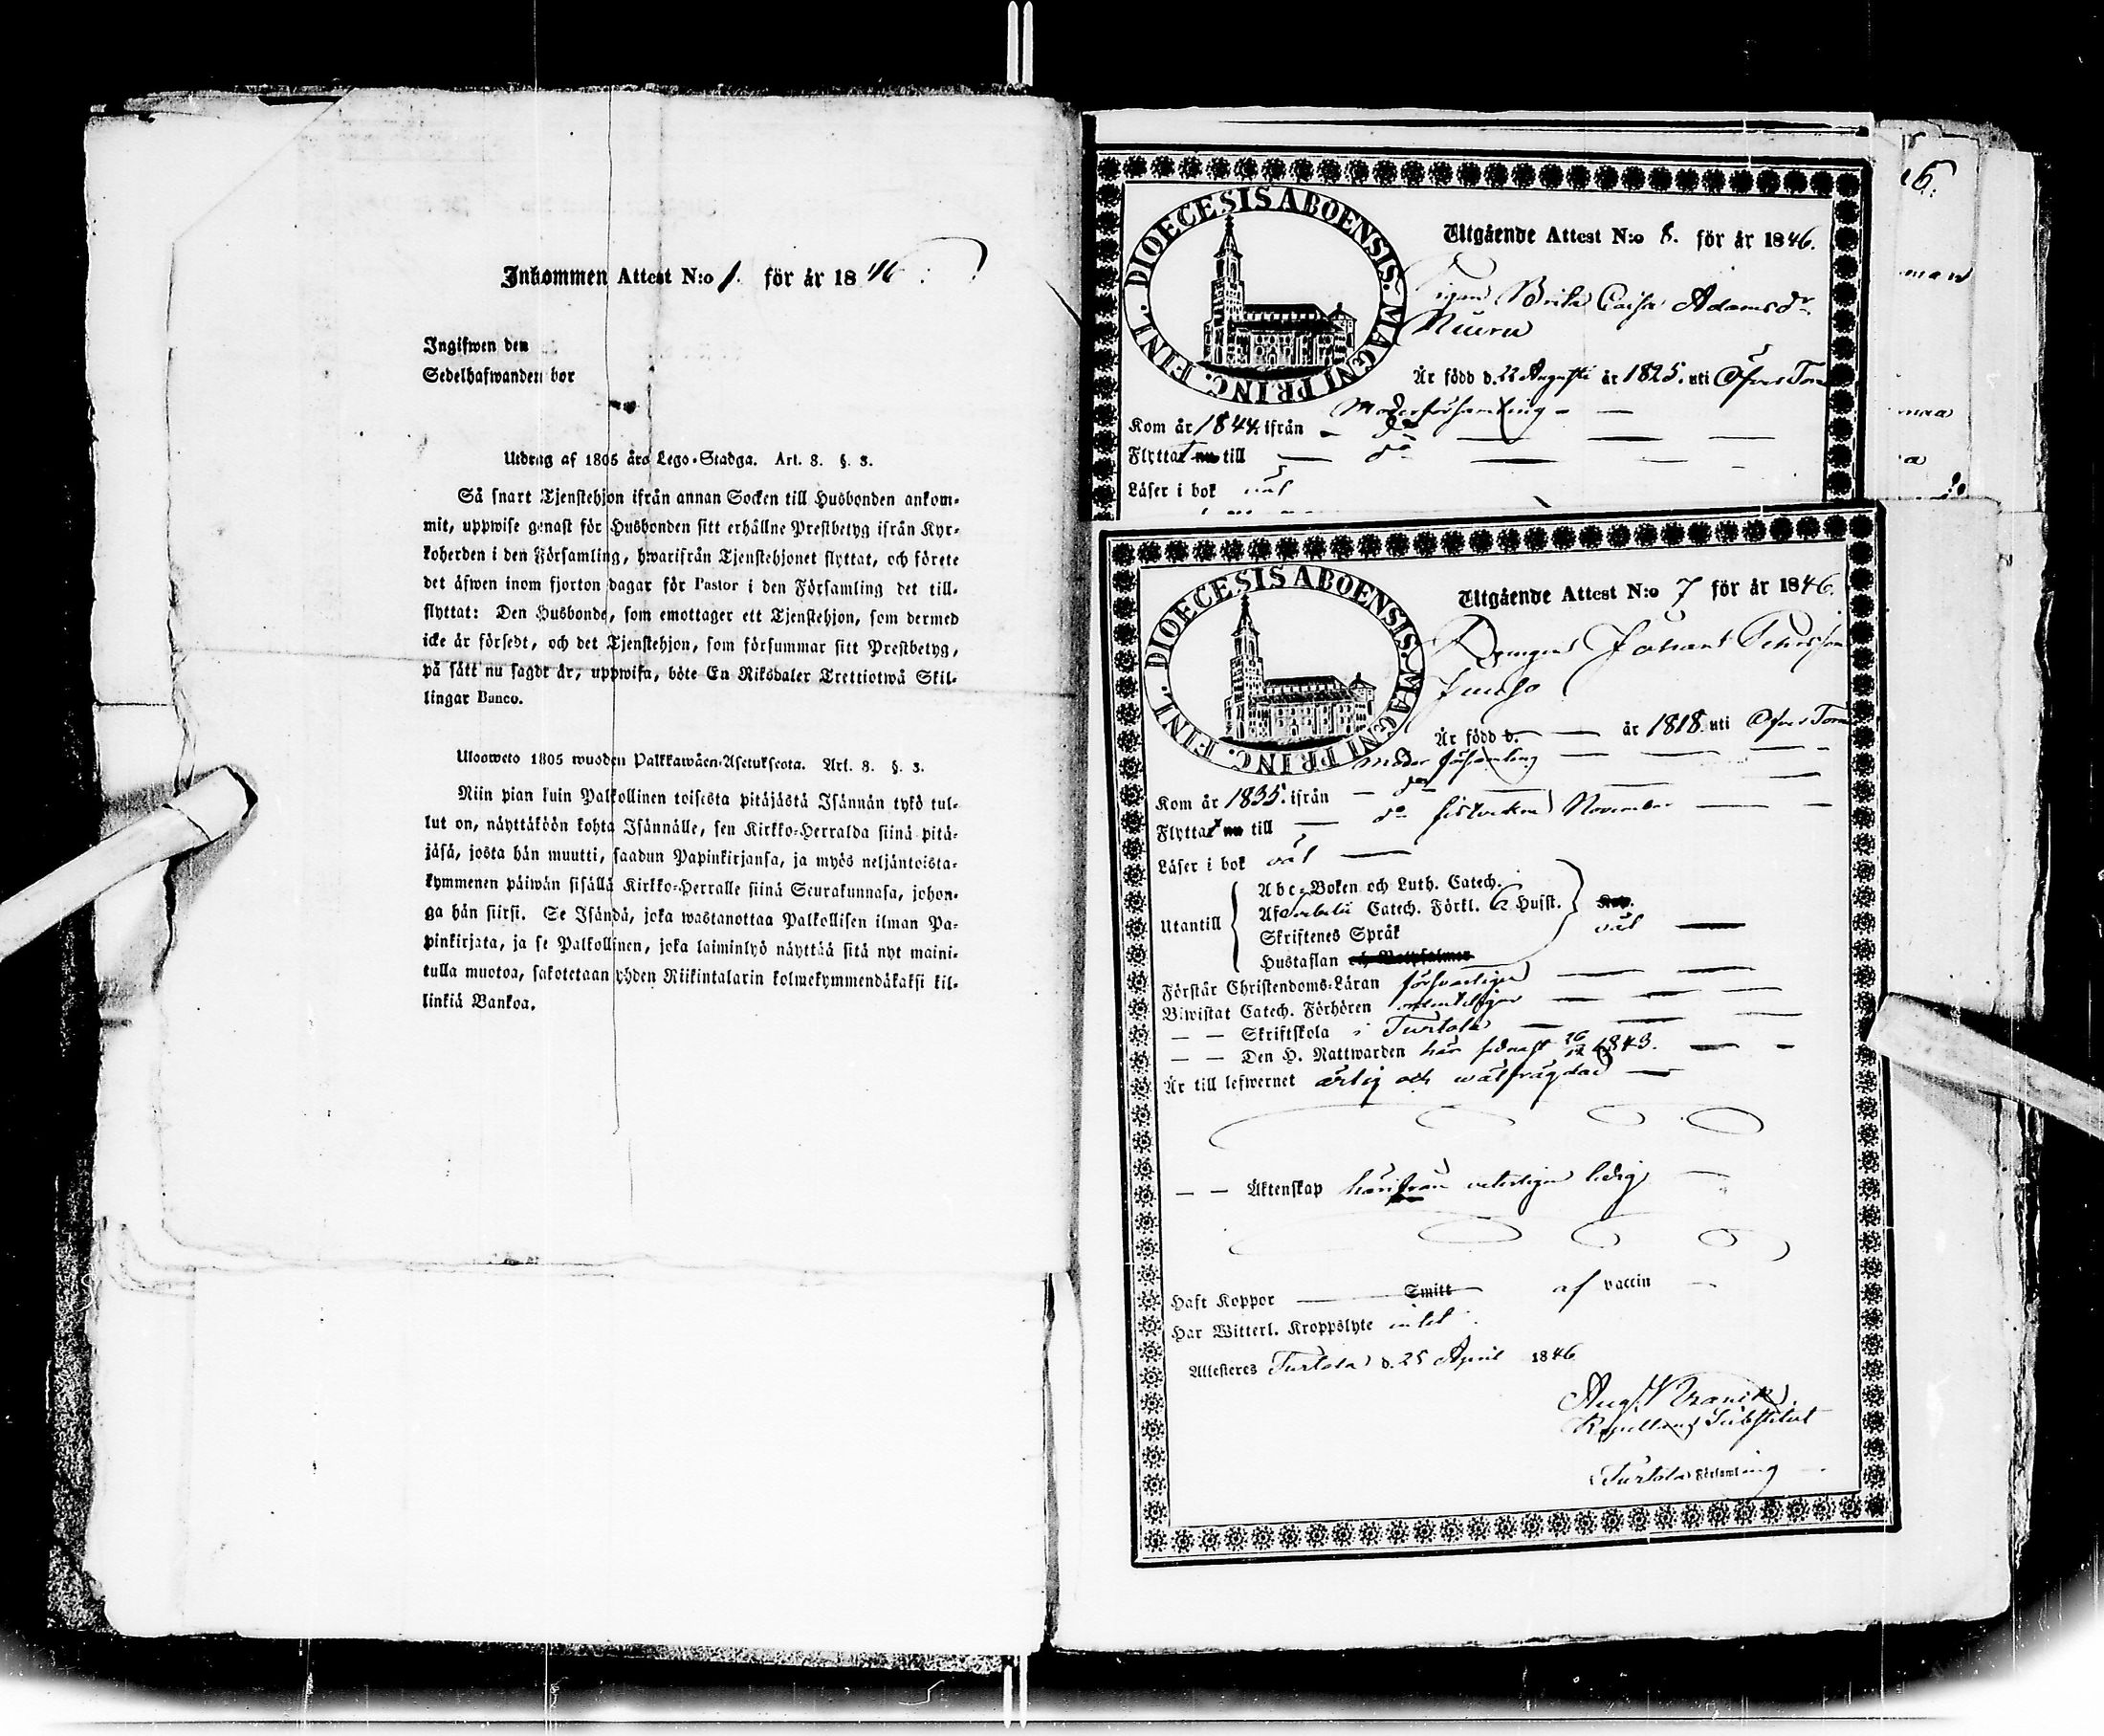 Inkommen Attest N:o 1. för år 1846.
Ingifwen den
Sedelhafwanden bor
Utdrag af 1805 års Lego-Stadga. Art. 8. §. 3.
Så snart Tjenstehjon ifrån annan Socken till Husbonden ankom-
mit, uppwise genast för Husbonden sitt erhållne Prestbetyg ifrån Kyr-
koherden i den Församling, hwarifrån Tjenstehjonet flyttat, och förete
det äfwen inom fjorton dagar för Pastor i den Församling det till-
flyttat: Den Husbonde, som emottager ett Tjenstehjon, som dermed
icke är försedt, och det Tjenstehjon, som försummar sitt Prestbetyg,
på sätt nu sagdt är, uppwisa, böte En Riksdaler Trettiotwå Skil-
lingar Banco.
Ulosweto 1805 wuoden Palkkawäen-Asetuksesta. Art. 8. §. 3.
Niin pian kuin Palkollinen toisesta pitäjästä Isännän tykö tul-
lut on, näyttäköön kohta Isännälle, sen Kirkko-Herralda siinä pitä-
jäsä, josta hän muutti, saadun Papinkirjansa, ja myös neljäntoista-
kymmenen päiwän sisällä Kirkko-Herralle siinä Seurakunnasa, johon-
ga hän siirsi. Se Isändä, joka wastanottaa Palkollisen ilman Pa-
pinkirjata, ja se Palkollinen, joka laiminlyö näyttää sitä nyt maini-
tulla muotoa, sakotetaan yhden Riikintalarin kolmekymmendäkaksi kil-
linkiä Bankoa.
DIOECESIS ABOENSIS. MAGNI PRINC. FINL.
Utgående Attest N:o 8. för år 1846.
Pigan Brita Caisa Adamsdr
Är född d. 22 Augusti år 1825. uti Öfver Torn
Moderförsamling - —
Kom år 1844. ifrån - do — — —
Flyttat nu till — do — — —
Läser i bok väl
DIOECESIS ABOENSIS. MAGNI PRINC. FINL.
Utgående Attest N:o 7 för år 1846.
Drengen Johan Petersson
Junso
Är född d. — år 1818. uti Öfver Torn
Moder församling — — —
Kom år 1835. ifrån — do — —
Flyttat nu till — do November — —
Läser i bok väl —
Abc-Boken och Luth. Catech.
Af Svebelii Catech. Förkl. & Husst.
Utantill väl —
Skriftenes Språk
Hustaflan och Botpsalmer
Förstår Christendoms-Läran försvarligen — —
Biwistat Catech. Förhören ordentligen — — —
— — Skriftskola i Turtola — — —
— — Den H. Nattwarden här sednast 26/12 1843. — —
Är till lefwernet ärlig och wälfrägdad —
— — Äktenskap härifrån veterligen ledig —
Haft Koppor — Smitt — af vaccin —
Har Witterl. Kroppslyte intet
Attesteres Turtola d. 25 April 1846
Kapellans Substitut
Turtola Församling —
16.